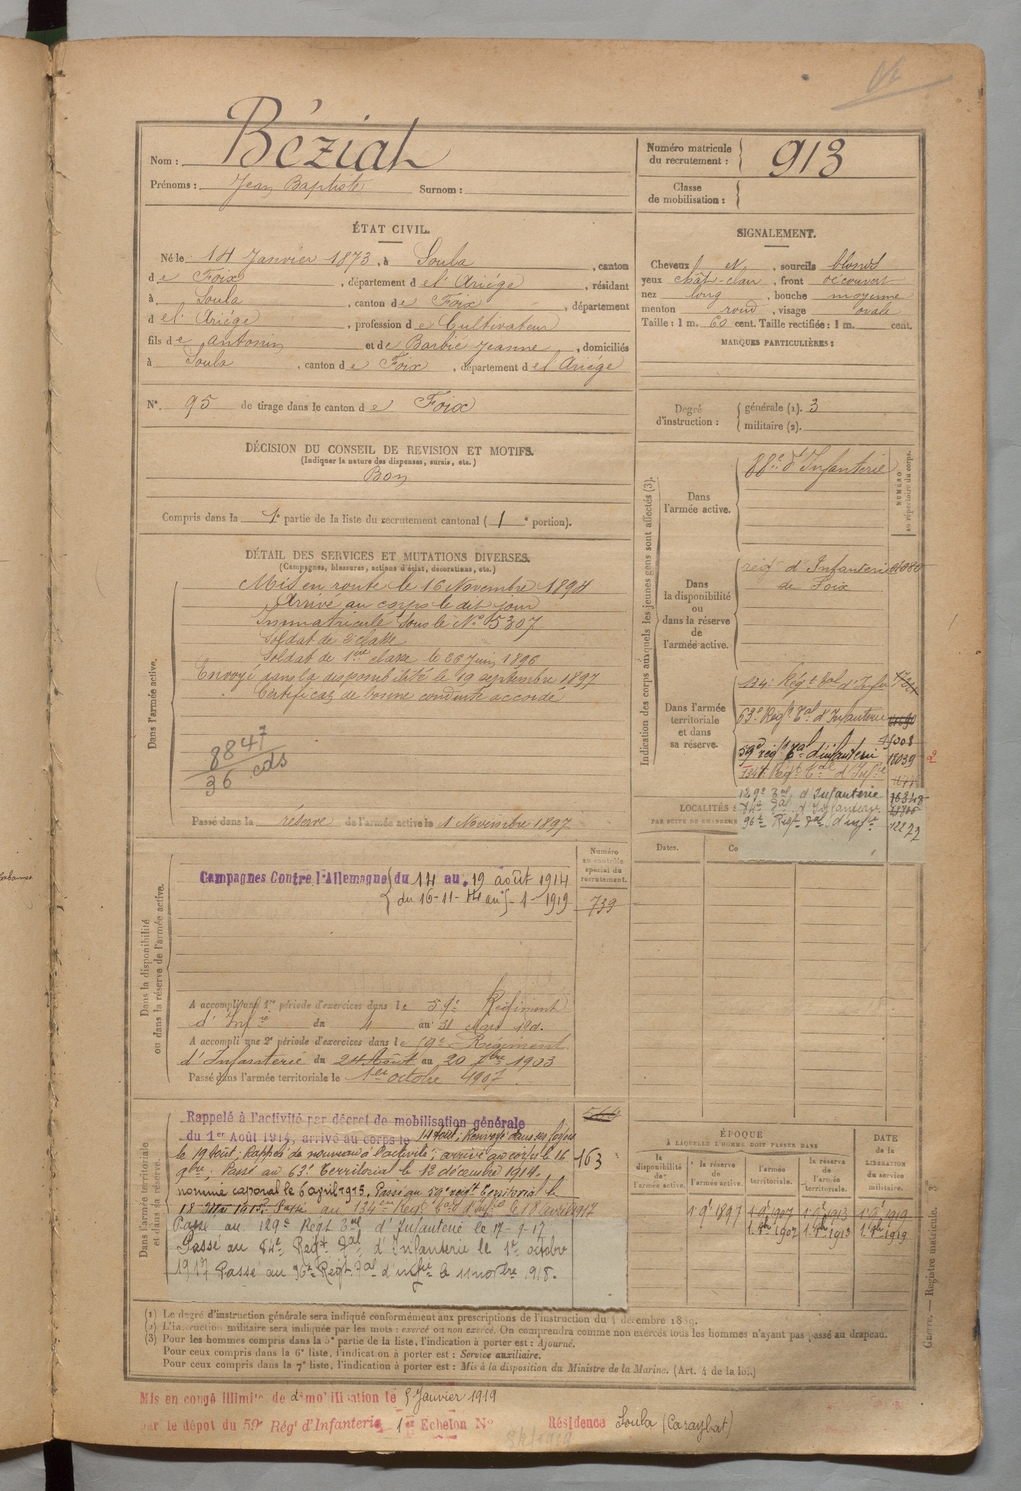 Nom : Béziat
Prénoms : Jean Baptiste Surnom :
Numéro matricule du recrutement : 913
Classe de mobilisation :
ÉTAT CIVIL.
Né le 14 Janvier 1873, à Soula, canton
de Foix, département de l'Ariége, résidant
à Soula, canton de Foix, département
de l'Ariége, profession de Cultivateur
fils de Antonin et de Barbie Jeanne, domiciliés
à Soula, canton de Foix, département de l'Ariége
N°. 95 de tirage dans le canton de Foix
SIGNALEMENT.
Cheveux et, sourcils blonds
yeux chât-clair, front découvert
nez long, bouche moyenne
menton rond, visage ovale
Taille : 1 m. 60 cent. Taille rectifiée : 1 m. cent.
MARQUES PARTICULIÈRES :
Degré d'instruction : générale (1). 3
militaire (2).
DÉCISION DU CONSEIL DE REVISION ET MOTIFS.
(Indiquer la nature des dispenses, sursis, etc.)
Bon
Compris dans la 1e partie de la liste du recrutement cantonal (1e portion).
DÉTAIL DES SERVICES ET MUTATIONS DIVERSES.
(Campagnes, blessures, actions d'éclat, décorations, etc.)
Dans l'armée active.
Mis en route le 16 Novembre 1894
Arrivé au corps le dit jour
Immatriculé sous le N° 5307
Soldat de 2e classe
Soldat de 1ère classe le 26 Juin 1896
Envoyé dans la disponibilité le 19 septembre 1897
Certificat de bonne conduite accordé
8847
36 cds
Passé dans la réserve de l'armée active le 1 Novembre 1897
Indication des corps auxquels les jeunes gens sont affectés (3).
NUMÉRO au répertoire du corps.
Dans l'armée active.
88e d'Infanterie
Dans la disponibilité ou dans la réserve de l'armée active.
rég d'Infanterie
de Foix
Dans l'armée territoriale et dans sa réserve.
134e Régt Tal d'Infie
63e Régt Tal d'Infanterie
59e régt Tal d'infanterie 12039
134e Régt Tal d'Infie
129e Tal d'Infanterie 16348
84e Tal d'Infanterie
96e Régt Tal d'infie 12272
LOCALITÉS
Dates.
Dans la disponibilité ou dans la réserve de l'armée active.
Numéro au contrôle spécial du recrutement.
739
Campagnes Contre l'Allemagne du 14 au 19 août 1914
du 16-11-14 au 5-1-1919
A accompli une 1re période d'exercices dans le 59e Régiment
d'Infie du au 31 Mars
A accompli une 2e période d'exercices dans le 59e Régiment
d'Infanterie du 24 Août au 20 7bre 1903
Passé dans l'armée territoriale le 1er octobre 1907
Dans l'armée territoriale et dans sa réserve.
163
Rappelé à l'activité par décret de mobilisation générale
du 1er Août 1914, arrivé au corps le 14 août; Renvoyé dans ses foyers
le 19 août; Rappelé de nouveau à l'activité; arrivé au corps le 16
9bre. Passé au 63e Territorial le 13 décembre 1914.
nommé caporal le 6 april 1915. Passé au 59e régt Territorial le
18 Mai 1915. Passé au 134e Régt Tal d'Infie le 18 avril 1917
Passé au 129e Régt Tal d'Infanterie le 17-9-17
Passé au 84e Régt Tal d'Infanterie le 1er octobre
1917 Passé au 96e Régt Tal d'infie le 11 novbre 1918.
ÉPOQUE
A LAQUELLE L'HOMME DOIT PASSER DANS
la disponibilité de l'armée active.
la réserve de l'armée active.
l'armée territoriale.
la réserve de l'armée territoriale.
DATE DE LA LIBÉRATION du service militaire.
1 9e 1897 1 9e 1907 1 9e 1913 1 9e 1919
1. 8bre 1907 1. 8bre 1913 1. 8bre 1919
(1) Le degré d'instruction générale sera indiqué conformément aux prescriptions de l'instruction du 4 décembre 1889.
(2) L'instruction militaire sera indiquée par les mots : exercé ou non exercé. On comprendra comme non exercés tous les hommes n'ayant pas passé au drapeau.
(3) Pour les hommes compris dans la 5e partie de la liste, l'indication à porter est : Ajourné.
Pour ceux compris dans la 6e liste, l'indication à porter est : Service auxiliaire.
Pour ceux compris dans la 7e liste, l'indication à porter est : Mis à la disposition du Ministre de la Marine. (Art. 4 de la loi.)
Guerre. — Registre matricule.
Mis en congé illimité de démobilisation le 5 Janvier 1919
par le dépôt du 59e Rég' d'Infanterie 1er Echelon N° Résidence Soula (Caraybat)